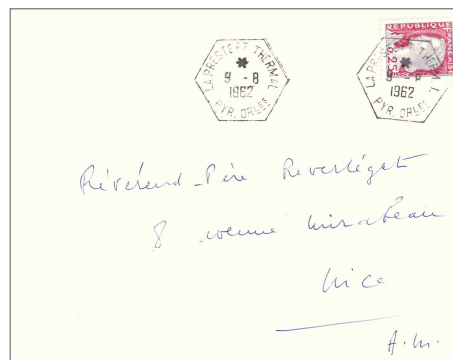 LA PRESTE ET THERMAL
9 -8
1962
PYR. ORLES
REPUBLIQUE FRANÇAISE
0,25
LA PRESTE ET THERMAL
9 -8
1962
PYR. ORLES
Révérend-Père Reverléget
8 avenue Mirabeau
Nice
A.M.